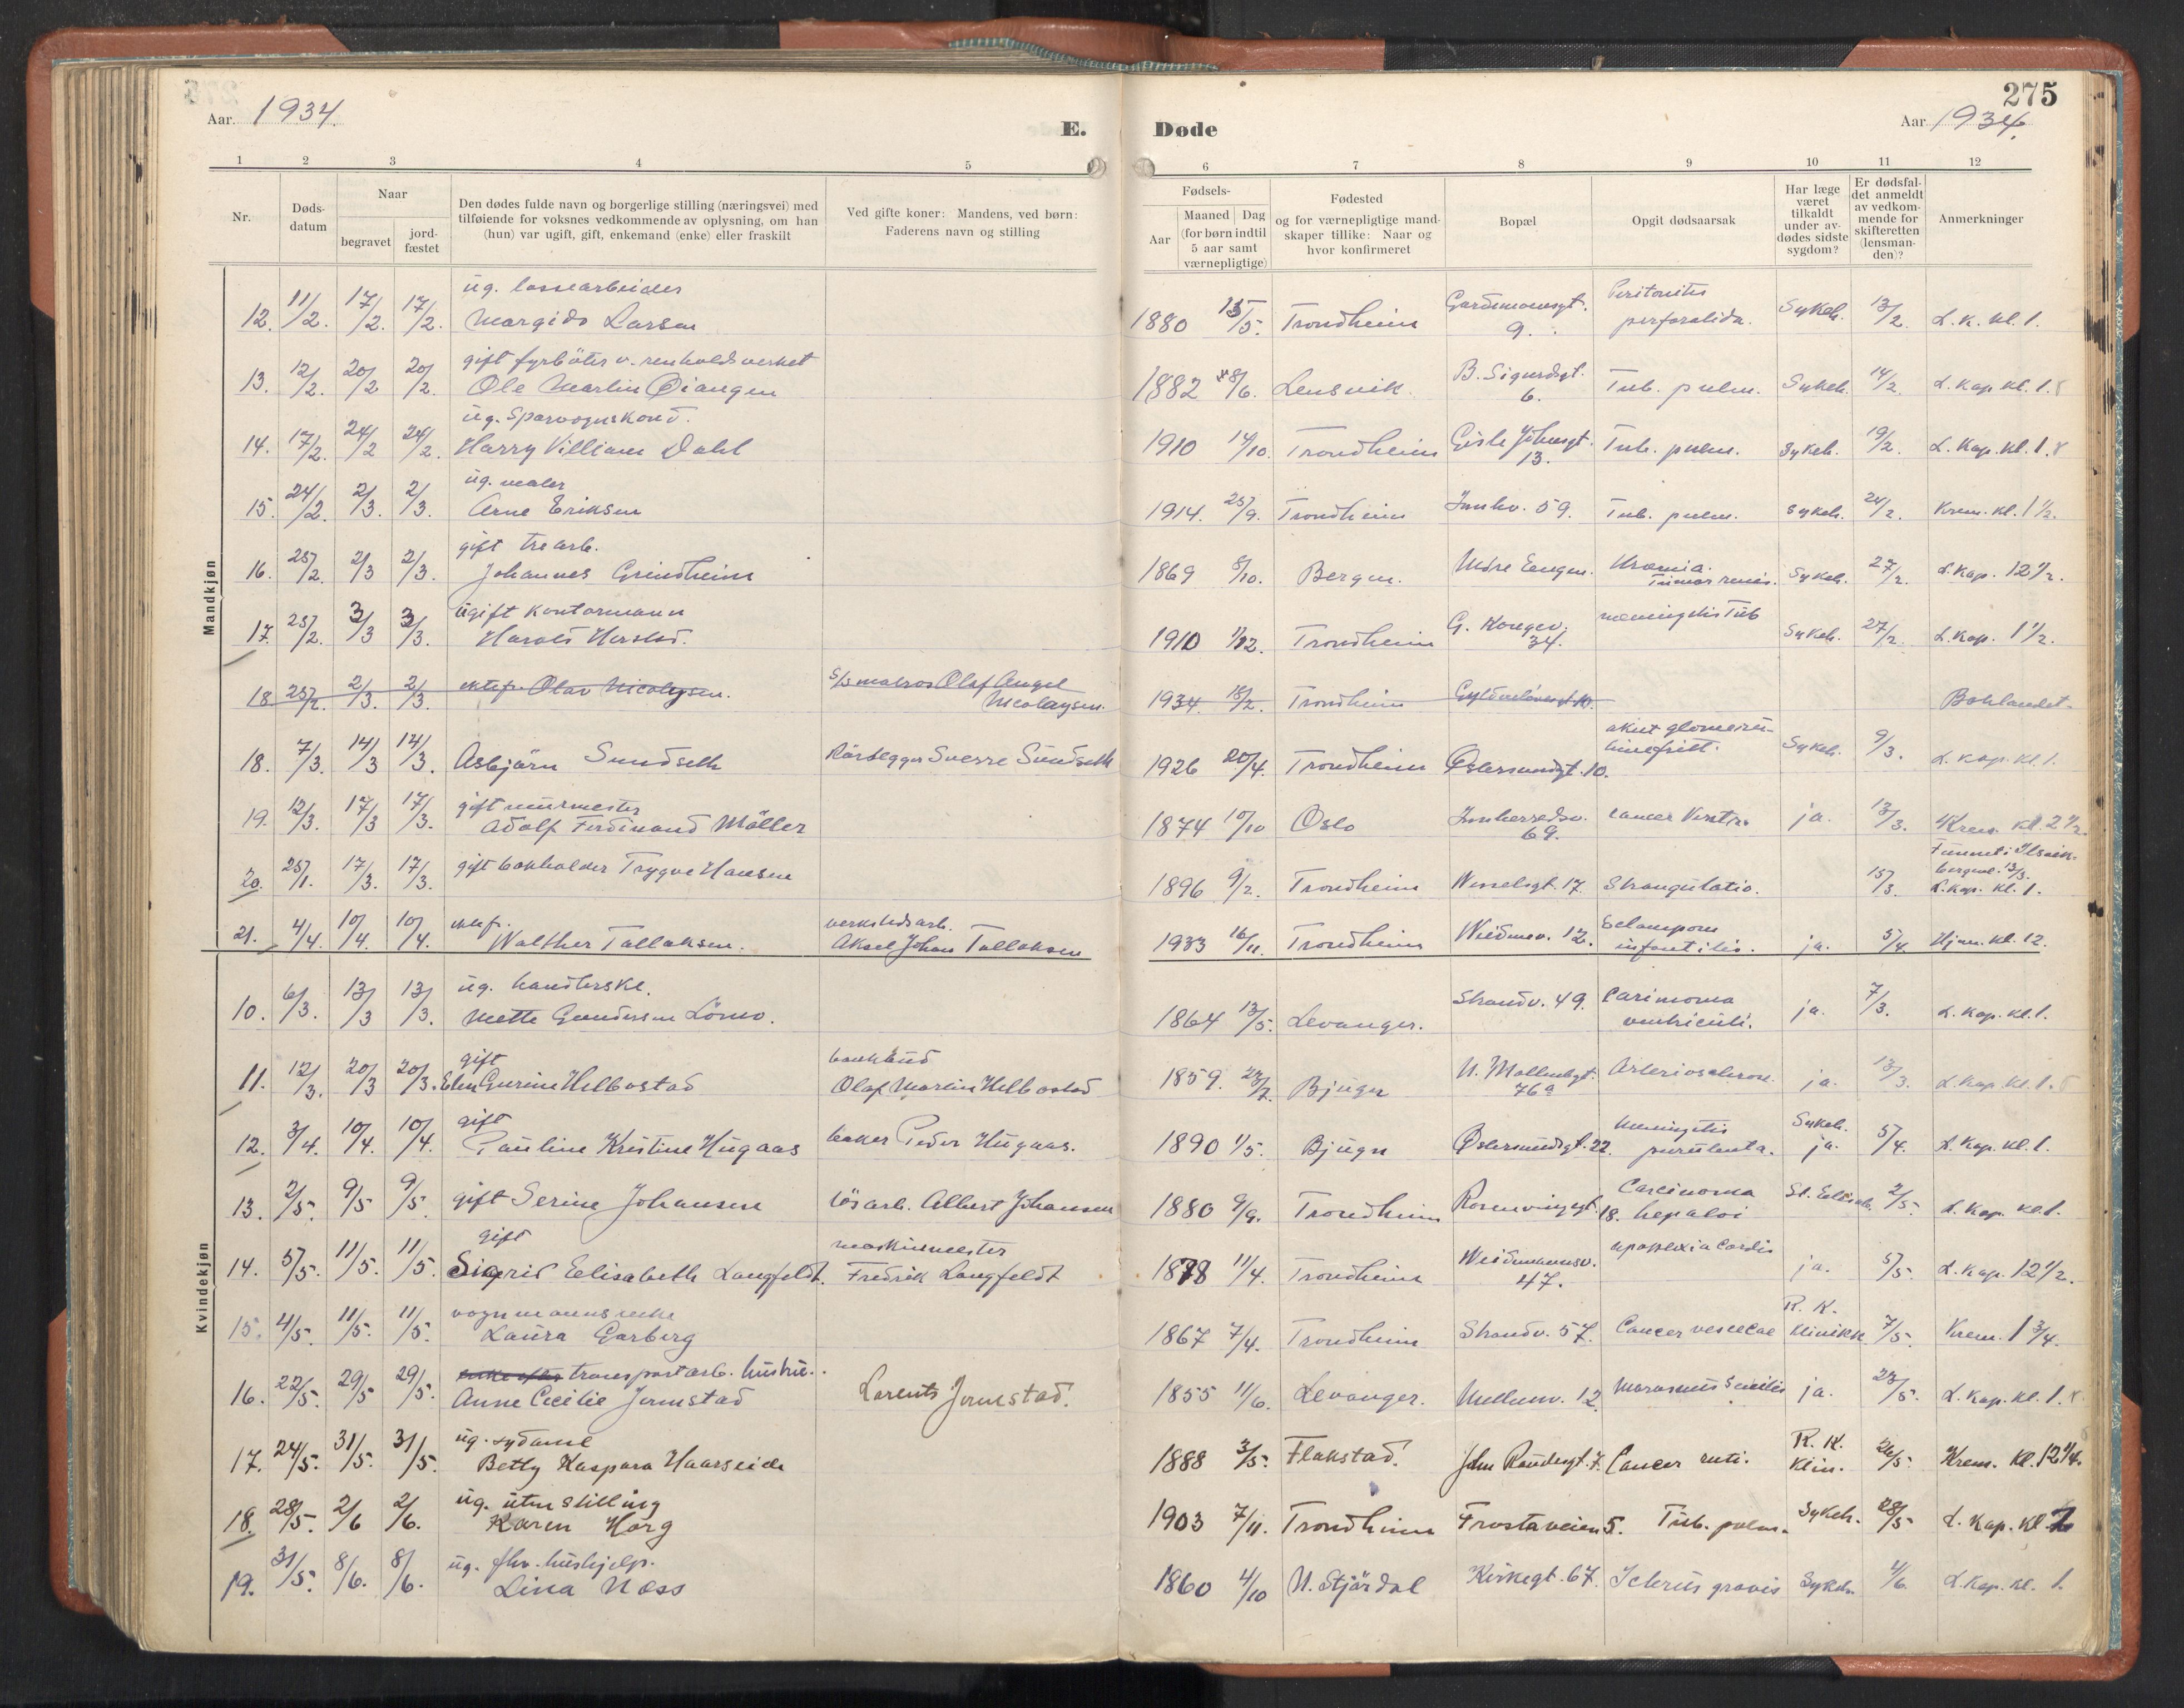 275
Aar. 1934.
E.
Døde
Aar 1934.
1 2 3 4 5 6 7 8 9 10 11 12
Nr.
Døds-
datum
Naar
begravet
jord-
fæstet
Den dødes fulde navn og borgerlige stilling (næringsvei) med
tilføiende for voksnes vedkommende av oplysning, om han
(hun) var ugift, gift, enkemand (enke) eller fraskilt
Ved gifte koner: Mandens, ved børn:
Faderens navn og stilling
Fødsels-
Aar
Maaned Dag
(for børn indtil
5 aar samt
værnepligtige)
Fødested
og for værnepligtige mand-
skaper tillike: Naar og
hvor konfirmeret
Bopæl
Opgit dødsaarsak
Har læge
været
tilkaldt
under av-
dødes sidste
sygdom?
Er dødsfal-
det anmeldt
av vedkom-
mende for
skifteretten
(lensman-
den)?
Anmerkninger
Mandkjøn
ug. lossearbeider
12. 11/2. 17/2. 17/2. Margido Larsen 1880 13/5. Trondheim 9. Peritonitis Sykeh. 13/2. L.K. kl. 1.
gift fyrböter v. renholdsverket
13. 12/2. 20/2 20/2. Ole Martin Öiangen 1882 8/6. Lensvik B. Sigurdsgt. 6. Tub. pulm. Sykeh. 14/2. L. Kap. kl. 1.
ug. Sporvognskond.
14. 17/2. 24/2 24/2. Harry Villiam Dahl 1910 14/10. Trondheim Gisle Johnsgt. 13. Tub. pulm. Sykeh. 19/2. L. Kap. kl. 1.
ug. maler
15. 24/2. 2/3. 2/3. Arne Eriksen 1914. 25/9. Trondheim Innhv. 59. Tub. pulm. Sykeh. 24/2. Krem. kl. 1 1/2.
gift trearb.
16. 25/2. 2/3 2/3. Johannes Grindheim 1869 8/10. Bergen. Uremia. Tumor renis. Sykeh. 27/2. L. Kap. 12 1/2.
ugift kontormann
17. 25/2. 3/3 3/3. Harald Herstad. 1910 1/12. Trondheim G. Kongev. 34. meningitis Tub Sykeh. 27/2. L. Kap. 1 1/2.
18 25/2. 2/3. 2/3. ektef. Olav Nicolaysen. matros Olaf Angel Nicolaysen. 1934. 18/2. Trondheim
18. 7/3. 14/3 14/3. Asbjörn Sundseth Rörlegger Sverre Sundseth 1926 20/4. Trondheim Östersundsgt. 10. akut Sykeh. 9/3. L. Kap. kl. 1.
gift murmester
19. 12/3. 17/3 17/3. Adolf Ferdinand Möller 1874 10/10 Oslo Innherredsv. 69. cancer ja. 13/3. Krem. kl. 2 1/2.
20. 25/1. 17/3. 17/3. gift bokholder Trygve Hansen 1896 9/2. Trondheim Wesselsgt. 17. Strangulatio. 15/3. Funnet i 13/3. L. Kap. kl. 1.
21. 4/4. 10/4. 10/4. ektef. Walther Tollaksen. verkstedsarb. Aksel Johan Tollaksen 1933 16/11. Trondheim Weidmv. 12. infantilis. ja. 5/4 Hjem. kl. 12.
Kvindekjøn
10. 6/3. 13/3 13/3. ug. handlerske. Mette Gundersen Lömo. 1864 13/5. Levanger. Strandv. 49. Carinoma ventriculi. ja. 7/3. L. Kap. kl. 1.
gift
11. 12/3. 20/3 20/3. Elen Gurine Helbostad Olaf Martin Helbostad 1859. 23/7. Bjugn N. Möllenbgt. 76a Arteriosclerose. ja. 13/3. L. Kap. kl. 1.
gift
12. 3/4. 10/4. 10/4. Pauline Kristine Hugaas baker Peder Hugaas. 1890 1/5. Bjugn Östersundsgt. 22. Meningitis purulenta. Sykeh. ja. 5/4. L. Kap. kl. 1.
13. 2/5. 9/5 9/5. gift Serine Johansen lösarb. Albert Johansen 1880 9/9. Trondheim 18. Carcinoma St. Elisab. 2/5. L. Kap. kl. 1.
gift
14. 5/5. 11/5. 11/5. Sigrid Elisabeth Langfeldt. maskinmester Fredrik Langfeldt 1878 11/4. Trondheim Weidmannsv. 47. apoplexia Cordis ja. 5/5. L. Kap. 12 1/2.
15. 4/5. 11/5. 11/5. vognmannsenke Laura Garberg 1867 7/4. Trondheim Strandv. 57. Cancer vesicae R. K. Klinikk 7/5. Krem. 1 3/4.
16. 22/5. 29/5 29/5. transportarb. hustru. Anne Cecilie Jermstad Lorents Jermstad. 1855 11/6. Levanger. Mellemv. 12. Marasmus Senilis ja. 23/5. L. Kap. kl. 1.
17. 24/5. 31/5. 31/5. ug. sydame Betty Kaspara Haarseide 1888 3/5. Flakstad. Cancer R. K. Klin. 26/5. Krem. kl. 12 1/4.
18. 28/5. 2/6 2/6. ug. uten stilling Karen Horg 1903 7/11. Trondheim Frostaveien 5. Tub. pulm. Sykeh. 28/5 L. Kap. kl.
19. 31/5. 8/6. 8/6. ug. fhv. hushjelp. Lina Næss 1860 4/10 N. Stjördal Kirkegt. 67. Icterus gravis Sykeh. 1/6. L. Kap. kl. 1.